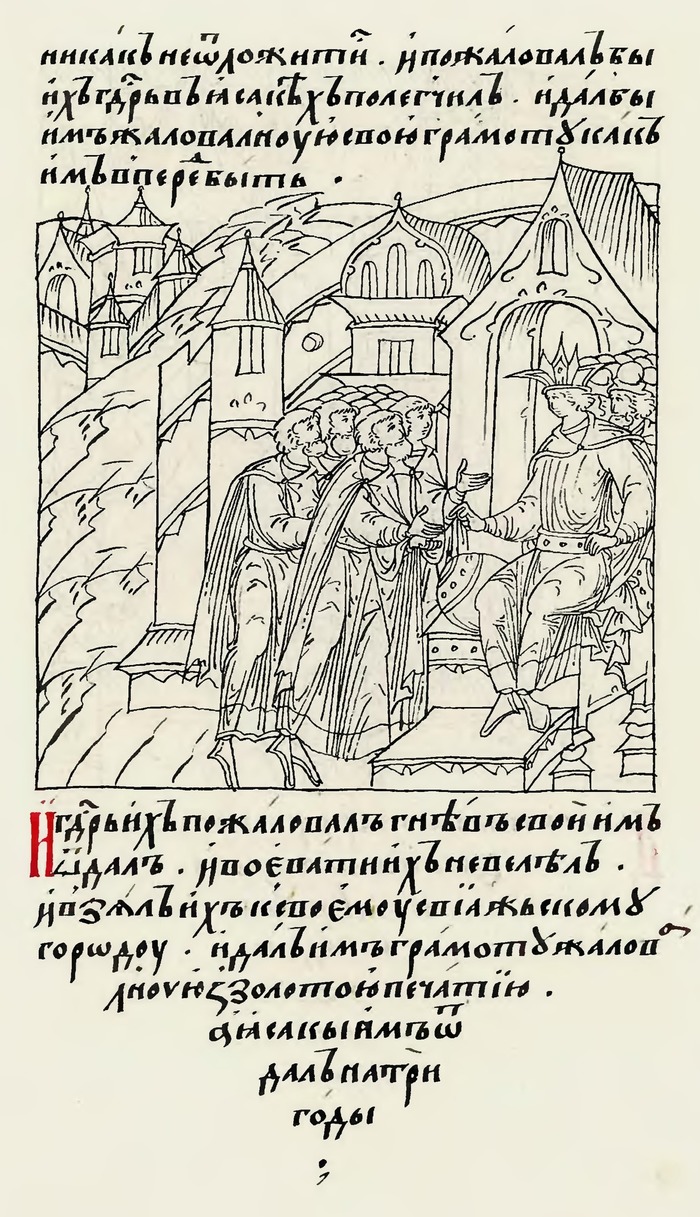 никакъ неѿложитїи . и пожаловалъ бы
ихъ гд҃рь въ ꙗсакѣхъ полегчилъ . и далъ бы
имъ жаловалноую свою грамотꙋ какъ
имъ впереⷣ быть .
И гд҃рь ихъ пожаловалъ гнѣвъ свой имъ
ѿдалъ . и воєвати ихъ не велѣлъ .
и взѧлъ ихъ к своємоу свїажьскомꙋ
горѡдоу . и далъ имъ грамотꙋ жалова
лноую ѕ золотою печатїю .
а ꙗсакы имъ ѿ
далъ на три
годы